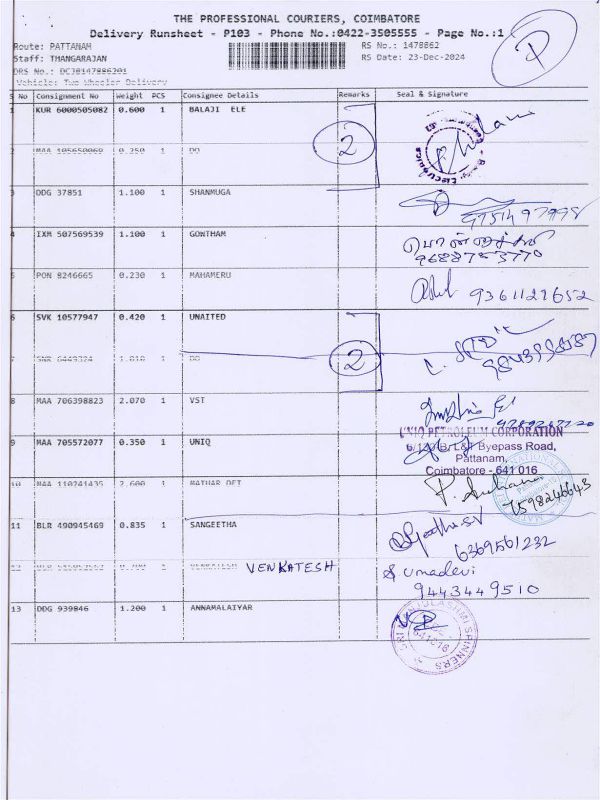 THE PROFESSIONAL COURIERS, COIMBATORE
Delivery Runsheet - P103 - Phone No.:0422-3505555 - Page No.:1
Route: PATTANAM RS No.: 1478862
Staff: THANGARAJAN RS Date: 23-Dec-2024
DRS No.: DCJB147886201
Vehicle: Two Wheeler Delivery
S No Consignment No Weight PCS Consignee Details Remarks Seal & Signature
1 KUR 6000505082 0.600 1 BALAJI ELE
2
MAA 105650069 0.350 1 DO
3 DDG 37851 1.100 1 SHANMUGA
9751497998
4 IXM 507569539 1.100 1 GOWTHAM
9688753770
5 PON 8246665 0.230 1 MAHAMERU
9361127652
6 SVK 10577947 0.420 1 UNAITED
2
7 1 DO
8 MAA 706398823 2.070 1 VST
9 MAA 705572077 0.350 1 UNIQ
UNIQ PETROLEUM CORPORATION
L&T Byepass Road,
Pattanam,
Coimbatore - 641 016
10 MAA 110241435 2.600 1 MATHAR DET
7598246643
11 BLR 490945469 0.835 1 SANGEETHA
6369561232
12 1 VENKATESH VENKATESH
S umadevi
9443449510
13 DDG 939846 1.200 1 ANNAMALAIYAR
641016